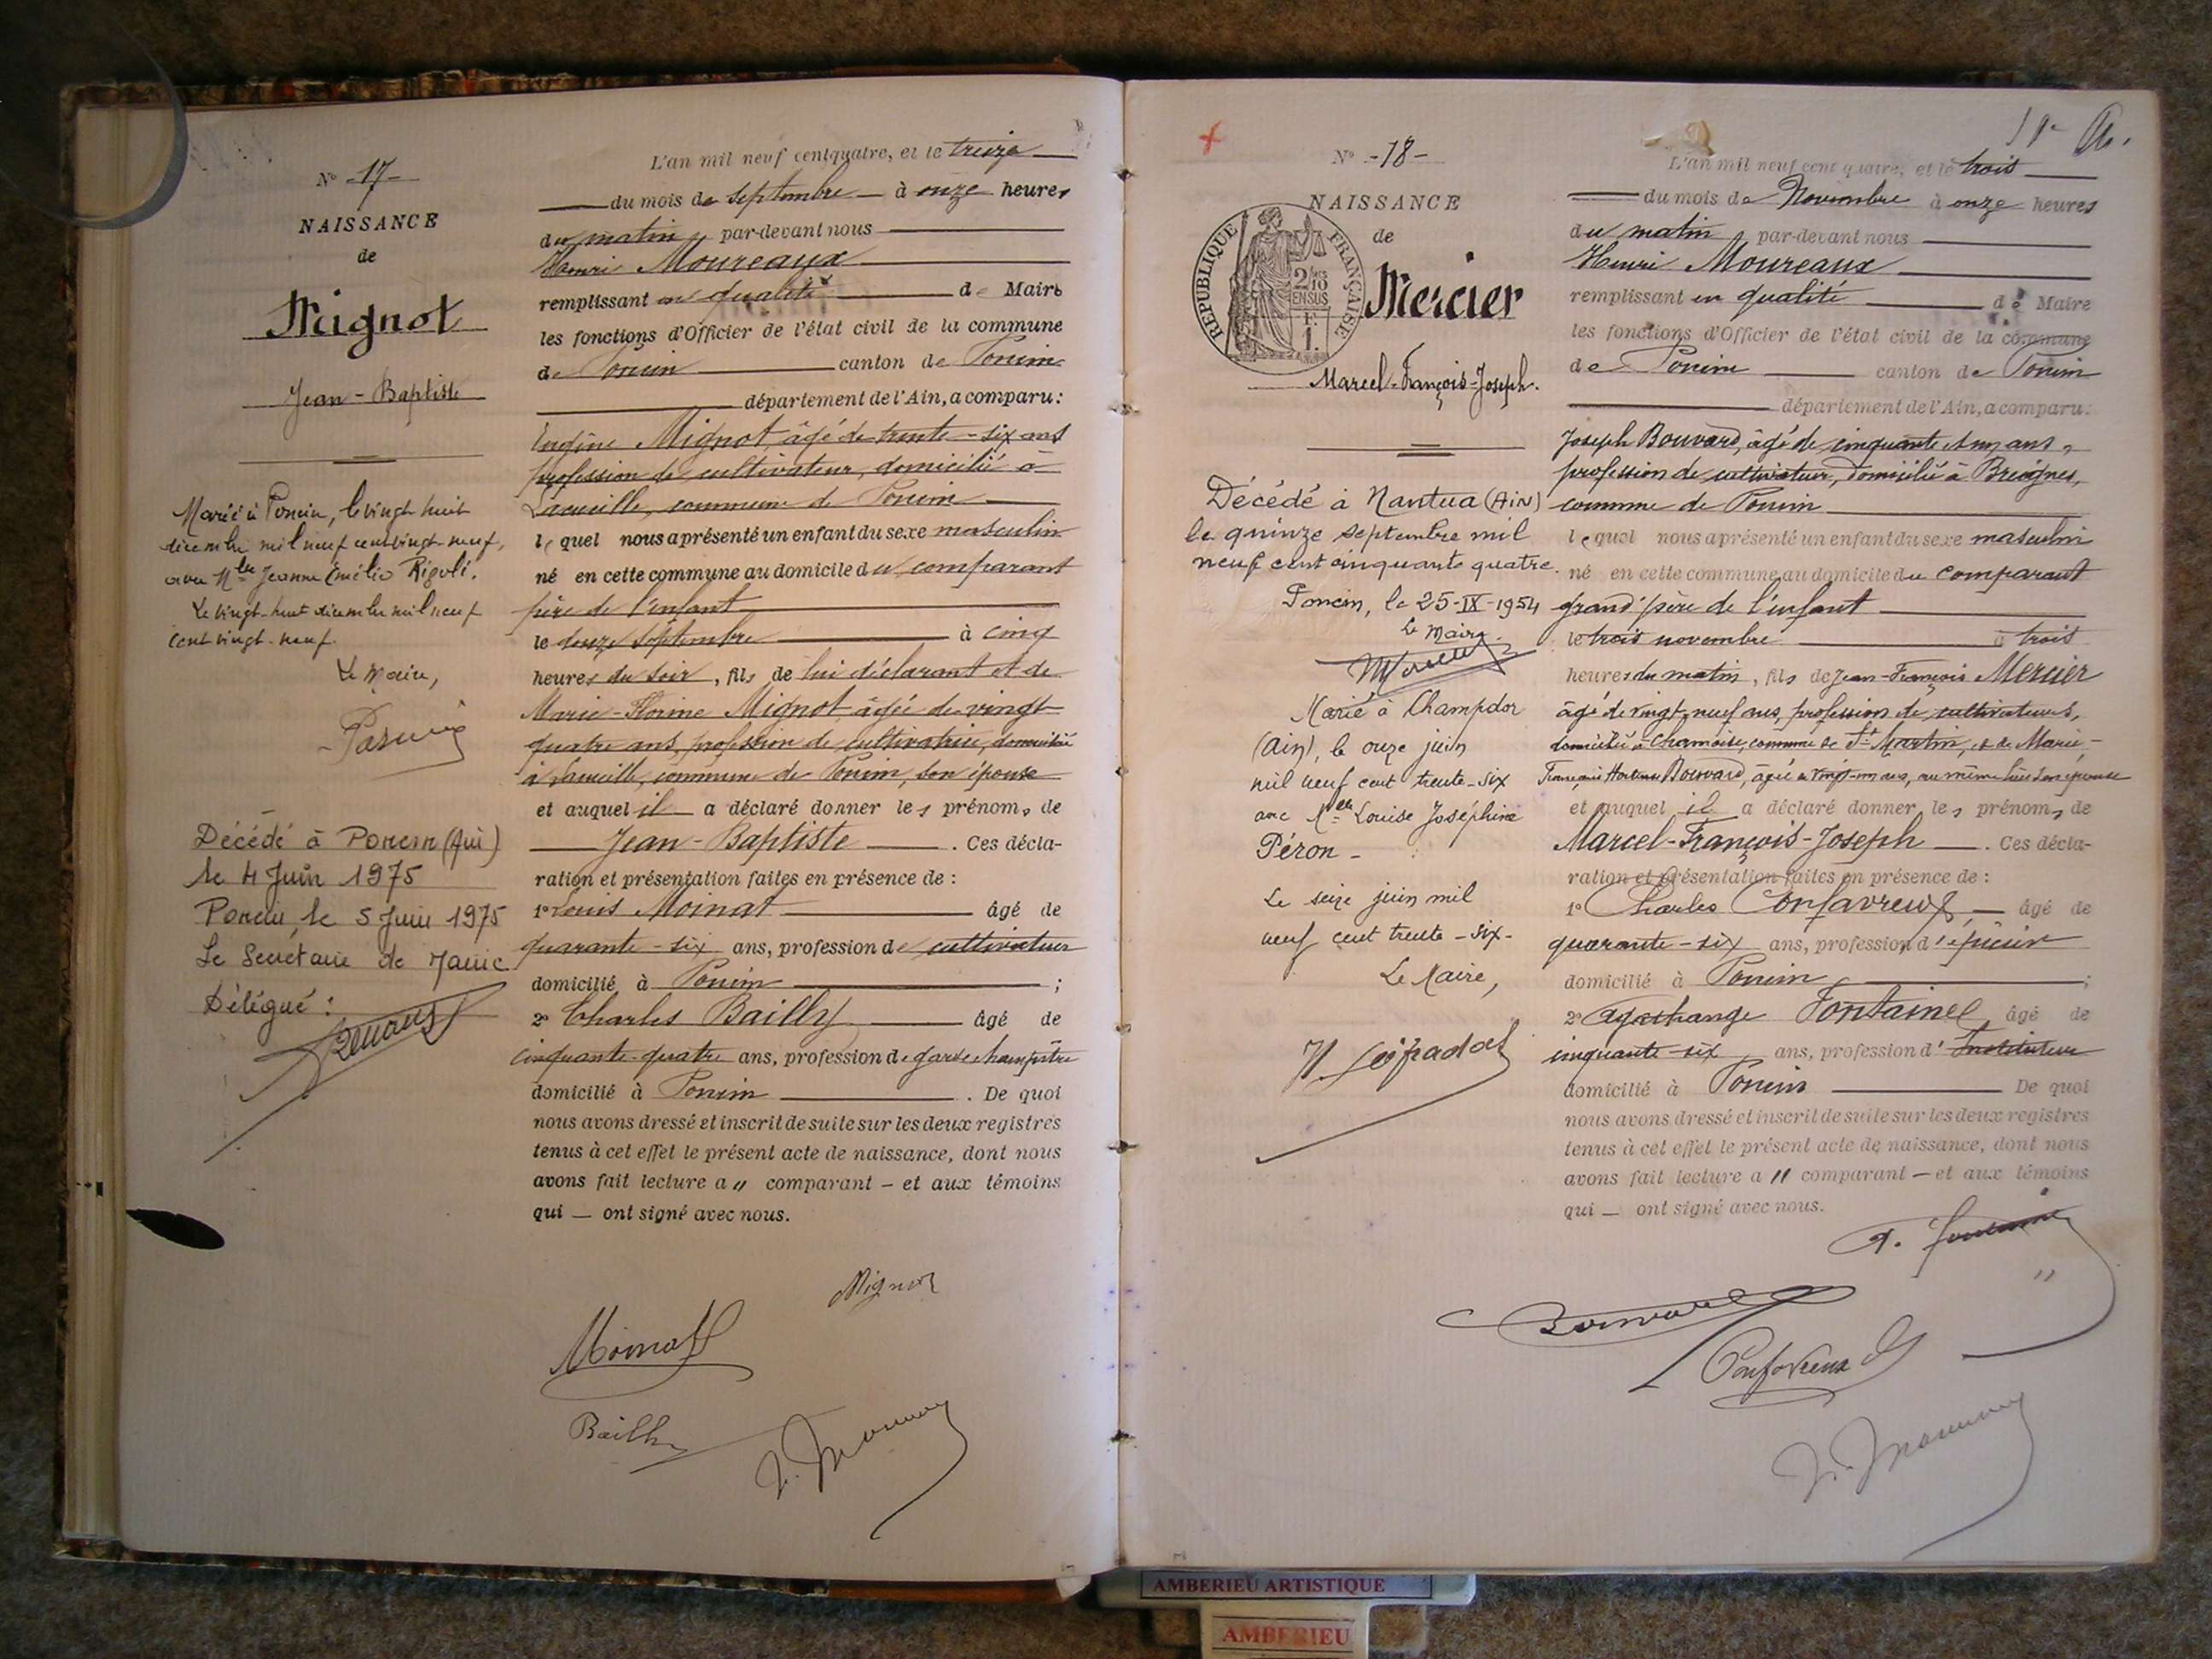 N° -17-
NAISSANCE
de
Mignot
Jean-Baptiste
Marié à Poncin, le vingt huit
décembre mil neuf cent vingt-neuf,
avec Mlle Jeanne Emélie Rigoli.
Le vingt-huit décembre mil neuf
cent vingt-neuf.
Le Maire,
Décédé à Poncin (Ain)
le 4 Juin 1975
Poncin, le 5 Juin 1975
Le Secrétaire de Mairie
Délégué :
L'an mil neuf cent quatre, et le treize
du mois de septembre à onze heures
du matin par-devant nous
Henri Moureaux
remplissant en qualité de Maire
les fonctions d'Officier de l'état civil de la commune
de Poncin canton de Poncin
département de l'Ain, a comparu :
Eugène Mignot âgé de trente-six ans
profession de cultivateur, domicilié à
commune de Poncin
lequel nous a présenté un enfant du sexe masculin
né en cette commune au domicile du comparant
père de l'enfant
le douze septembre à cinq
heures du soir, fils de lui déclarant et de
Marie-Florine Mignot âgée de vingt
quatre ans, profession de cultivatrice, domiciliée
à commune de Poncin, son épouse
et auquel il a déclaré donner les prénoms de
Jean-Baptiste. Ces décla-
ration et présentation faites en présence de :
1° Louis Mornat âgé de
quarante-six ans, profession de cultivateur
domicilié à Poncin ;
2° Charles Bailly âgé de
cinquante-quatre ans, profession de garde champêtre
domicilié à Poncin. De quoi
nous avons dressé et inscrit de suite sur les deux registres
tenus à cet effet le présent acte de naissance, dont nous
avons fait lecture a " comparant – et aux témoins
qui — ont signé avec nous.
Mignot
Mornat
Bailly
N° -18-
NAISSANCE
de
REPUBLIQUE FRANÇAISE
2/10 EN SUS
F. 1.
Mercier
Marcel-François-Joseph.
Décédé à Nantua (AIN)
le quinze septembre mil
neuf cent cinquante quatre.
Poncin, le 25-IX-1954
Le Maire.
Marié à Champdor
(Ain), le onze juin
mil neuf cent trente-six
avec Melle Louise Joséphine
Péron -
Le seize juin mil
neuf cent trente-six-
Le Maire,
L'an mil neuf cent quatre, et le trois
du mois de Novembre à onze heures
du matin par-devant nous
Henri Moureaux
remplissant en qualité de Maire
les fonctions d'Officier de l'état civil de la commune
de Poncin canton de Poncin
département de l'Ain, a comparu :
Joseph Bouvard, âgé de cinquante et un ans,
profession de cultivateur, domicilié à Breignes,
commune de Poncin
lequel nous a présenté un enfant du sexe masculin
né en cette commune au domicile du comparant
grand'père de l'enfant
le trois novembre à trois
heures du matin, fils de Jean-François Mercier
âgé de vingt-neuf ans, profession de cultivateurs,
domicilié à Chamoise, commune de St Martin, et de Marie-
Françoise Hortense Bouvard, âgée de vingt-un ans, au même lieu son épouse
et auquel il a déclaré donner les prénoms de
Marcel-François-Joseph. Ces décla-
ration et présentation faites en présence de :
1° Charles Confavreux âgé de
quarante-six ans, profession d'épicier
domicilié à Poncin ;
2° Fontaine âgé de
cinquante-six ans, profession d'Instituteur
domicilié à Poncin De quoi
nous avons dressé et inscrit de suite sur les deux registres
tenus à cet effet le présent acte de naissance, dont nous
avons fait lecture a " comparant – et aux témoins
qui — ont signé avec nous.
Bouvard
Confavreux
AMBERIEU ARTISTIQUE
AMBERIEU